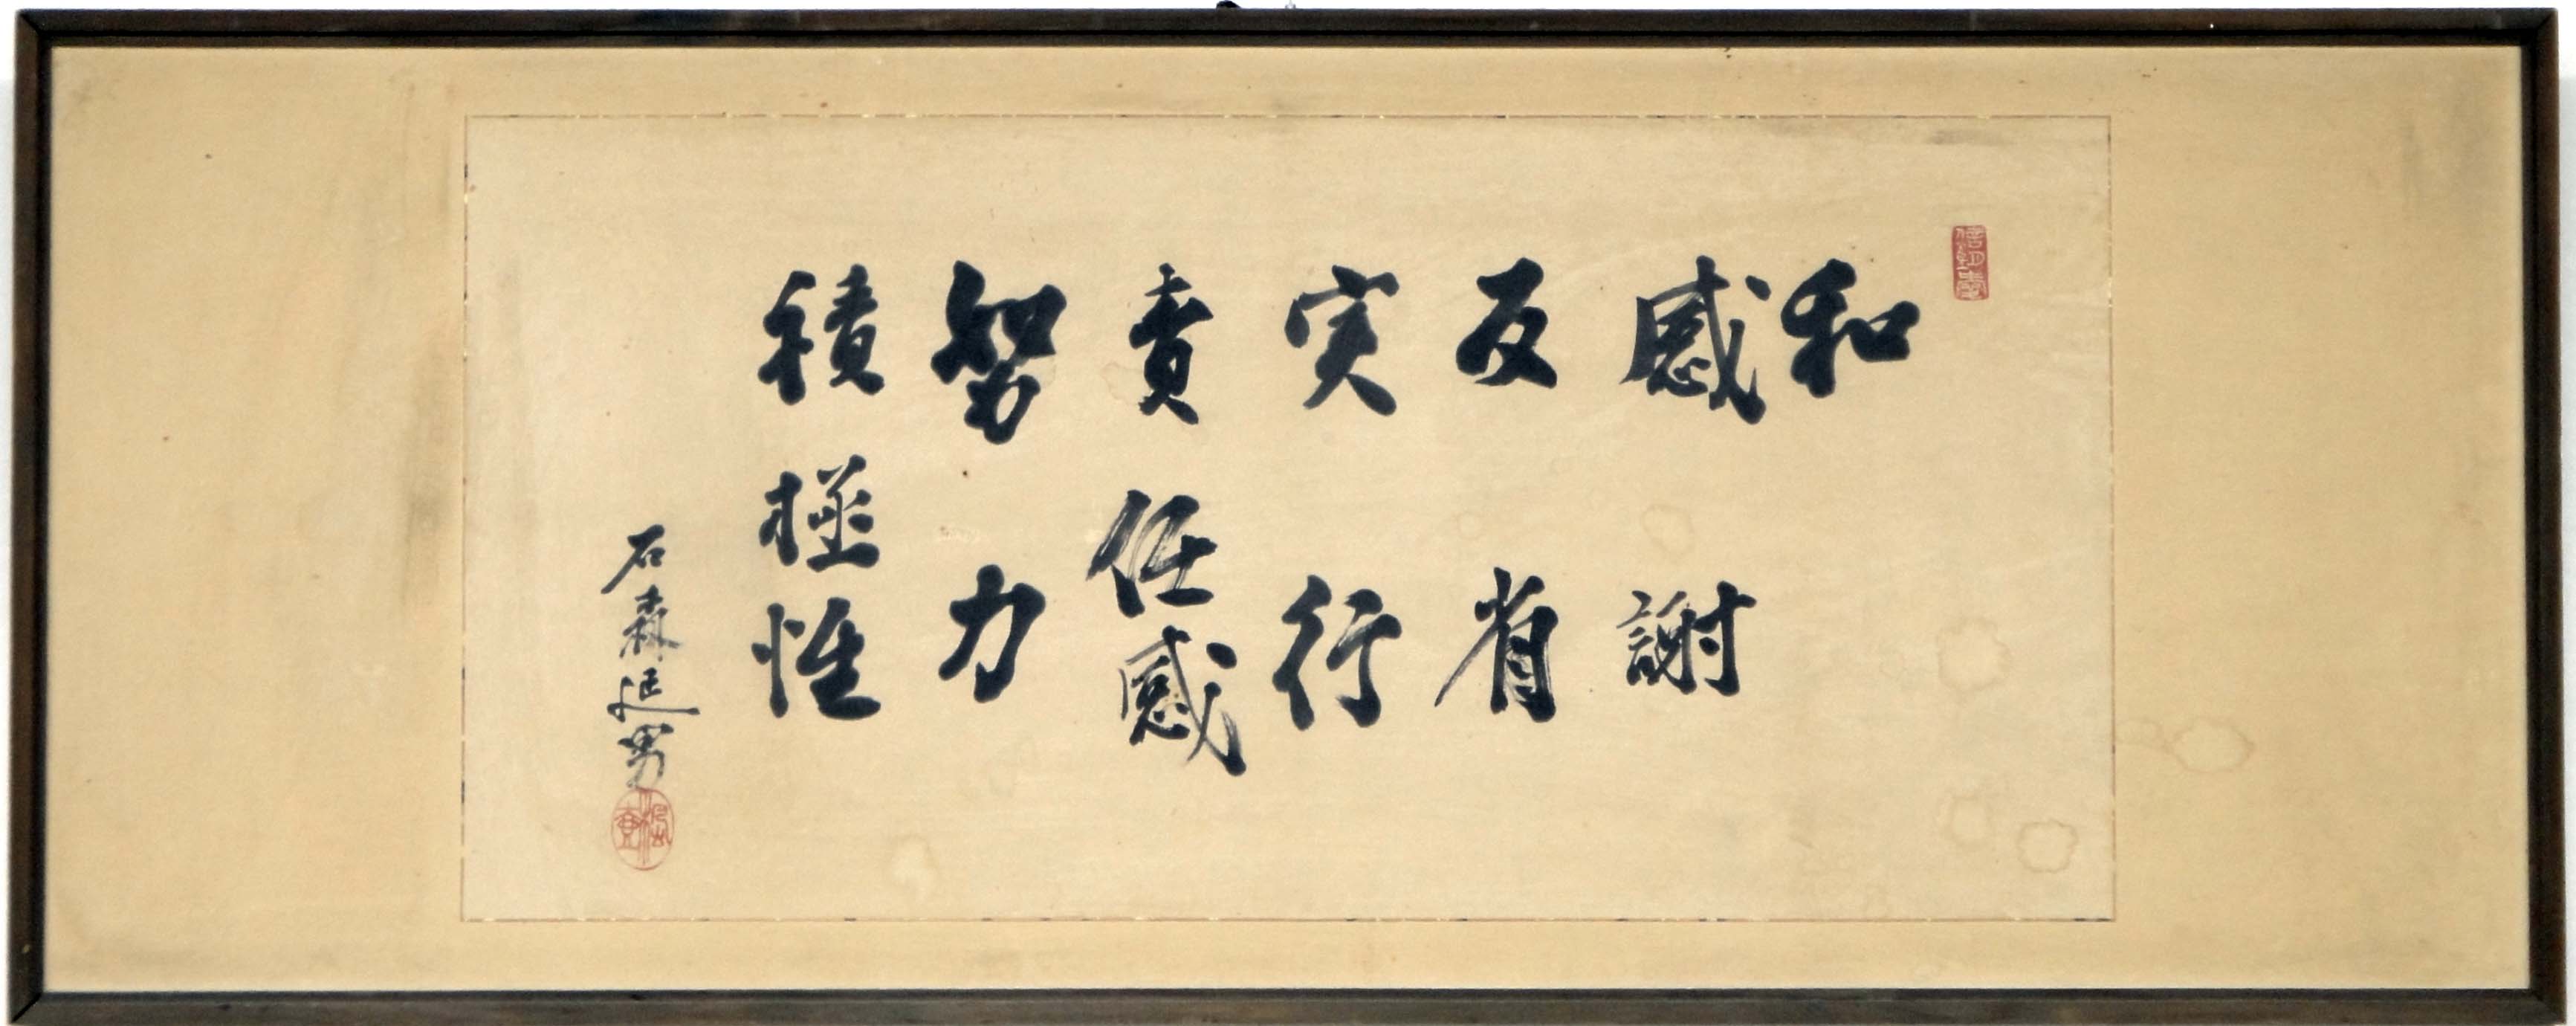 和
感謝
反省
実行
責任感
努力
積極性
石森延男